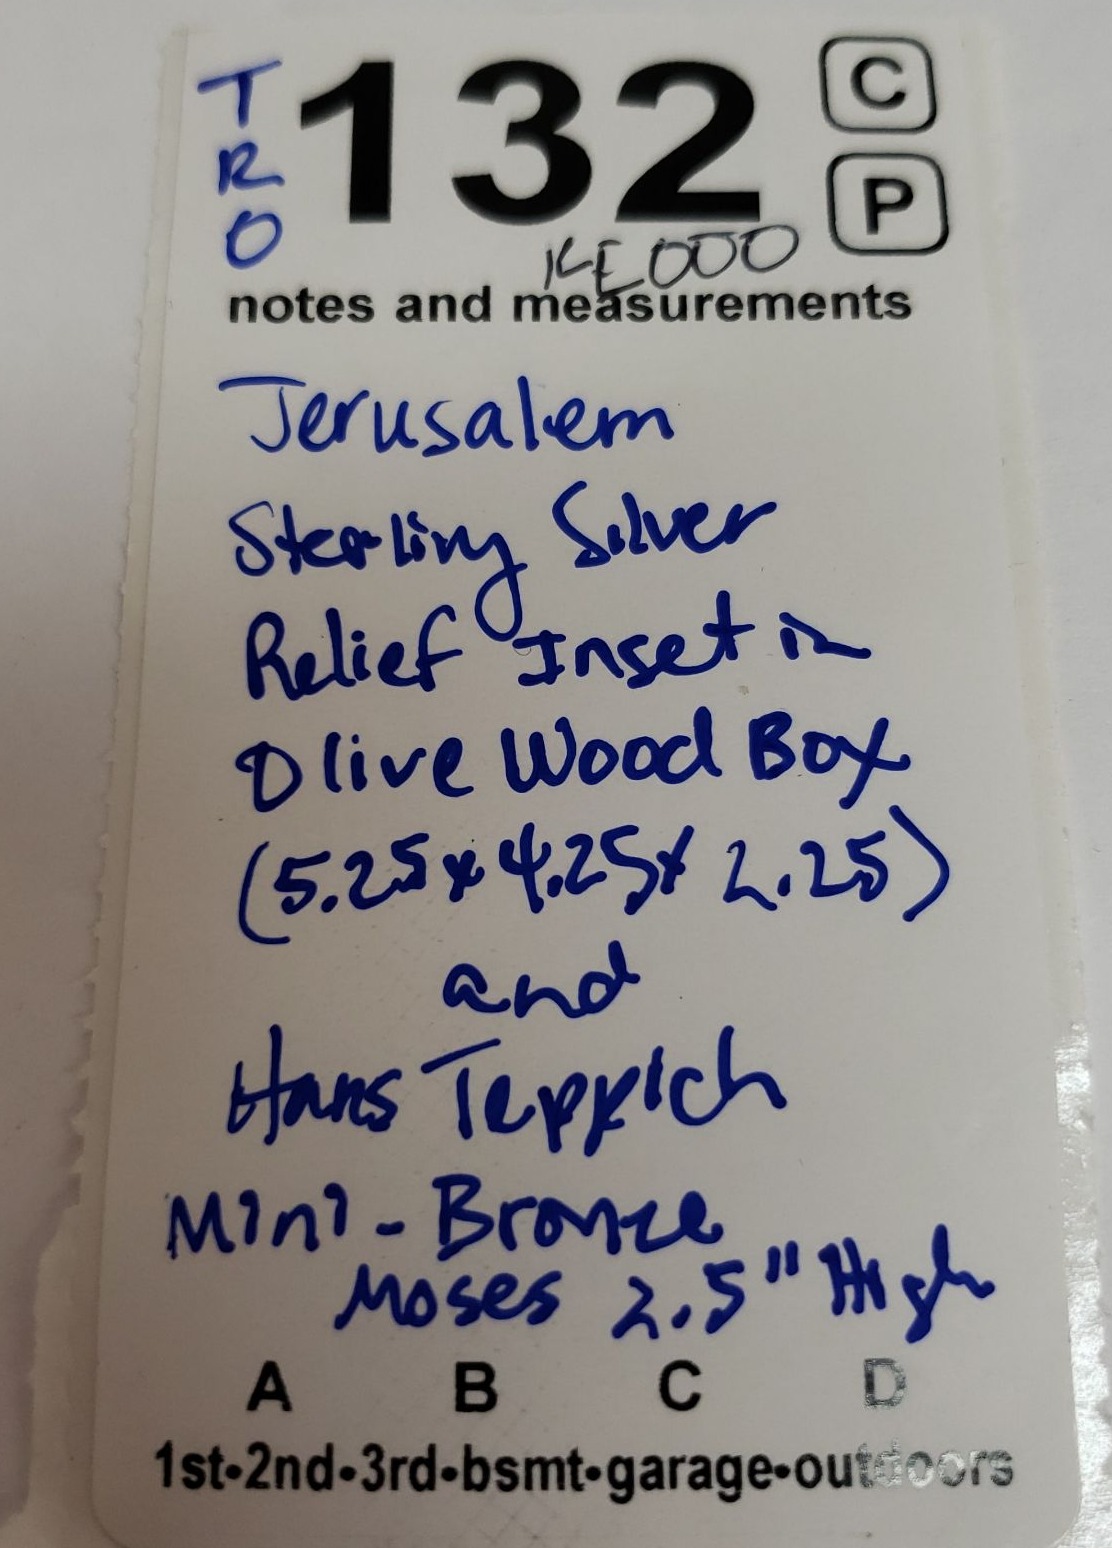 TRO
132
C
P
KE000
notes and measurements
Jerusalem
Sterling Silver
Relief Inset in
Olive Wood Box
(5.25 x 4.25 x 2.25)
and
Hans Teppich
Mini - Bronze
Moses 2.5" High
A B C D
1st•2nd•3rd•bsmt•garage•outdoors